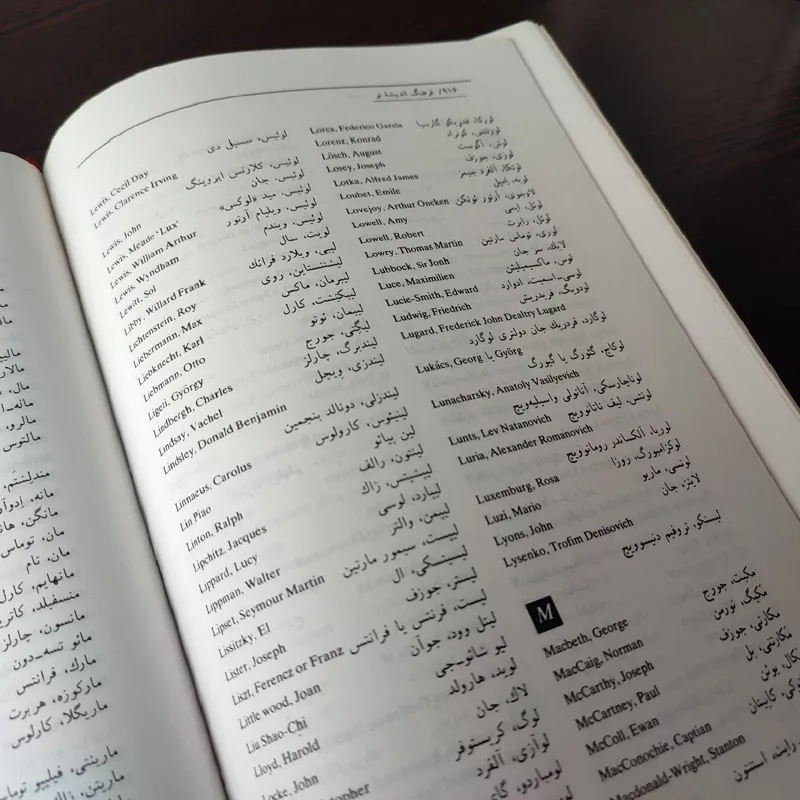 ۹۱۶/ فرهنگ اندیشهٔ نو
Lewis, Cecil Day لوئیس، سسیل دی
Lewis, Clarence Irving لوئیس، کلارنس ایروینگ
Lewis, John لوئیس، جان
Lewis, Meade 'Lux' لوئیس، مید «لوکس»
Lewis, William Arthur لوئیس، ویلیام آرتور
Lewis, Wyndham لوئیس، ویندم
Lewitt, Sol لویت، سال
Libby, Willard Frank لیبی، ویلارد فرانک
Lichtenstein, Roy لیشتنستاین، روی
Liebermann, Max لیبرمان، ماکس
Liebknecht, Karl لیبکنشت، کارل
Liebmann, Otto لیبمان، ئوتو
Ligeti, György لیگتی، جورج
Lindbergh, Charles لیندبرگ، چارلز
Lindsay, Vachel لیندزی، ویچل
Lindsley, Donald Benjamin لیندزلی، دونالد بنجمین
Linnaeus, Carolus لینیئوس، کارولوس
Lin Piao لین پیائو
Linton, Ralph لینتون، رالف
Lipchitz, Jacques لیپشیتس، ژاک
Lippard, Lucy لیپارد، لوسی
Lippman, Walter لیپمن، والتر
Lipset, Seymour Martin لیپست، سیمور مارتین
Lissitzky, El لیسیتسکی، ال
Lister, Joseph لیستر، جوزف
Liszt, Ferencz or Franz لیست، فرنتس یا فرانتس
Little wood, Joan لیتل وود، جوآن
Liu Shao-Chi لیو شائو-چی
Lloyd, Harold لوید، هارولد
Locke, John لاک، جان
لوگ، کریستوفر
لوآزی، آلفرد
لومباردو،
Lorca, Federico Garcia لورکا، فدریکو گارسیا
Lorenz, Konrad لورنتس، کونراد
Lösch, August لوش، آگوست
Losey, Joseph لوزی، جوزف
Lotka, Alfred James لوتکا، آلفرد جیمز
Loubet, Emile لوبه، امیل
Lovejoy, Arthur Oncken لاوجوی، آرتور ئونکن
Lowell, Amy لوئل، ایمی
Lowell, Robert لوئل، رابرت
Lowry, Thomas Martin لوری، توماس مارتین
Lubbock, Sir Jonh لابک، سر جان
Luce, Maximilien لوس، ماکسیمیلیئن
Lucie-Smith, Edward لوسی-اسمیت، ادوارد
Ludwig, Friedrich لودویگ، فریدریش
Lugard, Frederick John Dealtry Lugard
لوگارد، فردریک جان دولتری لوگارد
Lukács, Georg یا Györg
لوکاچ، گئورگ یا گیورگ
Lunacharsky, Anatoly Vasilyevich
لوناچارسکی، آناتولی واسیلیه‌ویچ
Lunts, Lev Natanovich لونتس، لیف ناتانوویچ
Luria, Alexander Romanovich
لوریا، آلکساندر رومانوویچ
Luxemburg, Rosa لوکزامبورگ، روزا
Luzi, Mario لوتسی، ماریو
Lyons, John لاینز، جان
Lysenko, Trofim Denisovich
لیسنکو، تروفیم دنیسوویچ
M
Macbeth, George مکبث، جورج
MacCaig, Norman مکیگ، نورمن
McCarthy, Joseph مکارتی، جوزف
McCartney, Paul مکارتنی، پل
McColl, Ewan مکال، یوئن
MacConochie, Captian کاپیتان
Macdonald-Wright, Stanton رایت، استنتون
مندلشتم،
مانه، ادوآر
مان، توماس
مان، تام
مانهایم، کارل
منسفیلد،
مانسون، چارلز
مائو تسه-دون
مارک، فرانتس
مارکوزه، هربرت
ماریگلا، کارلوس
مارینتی، فیلیپو